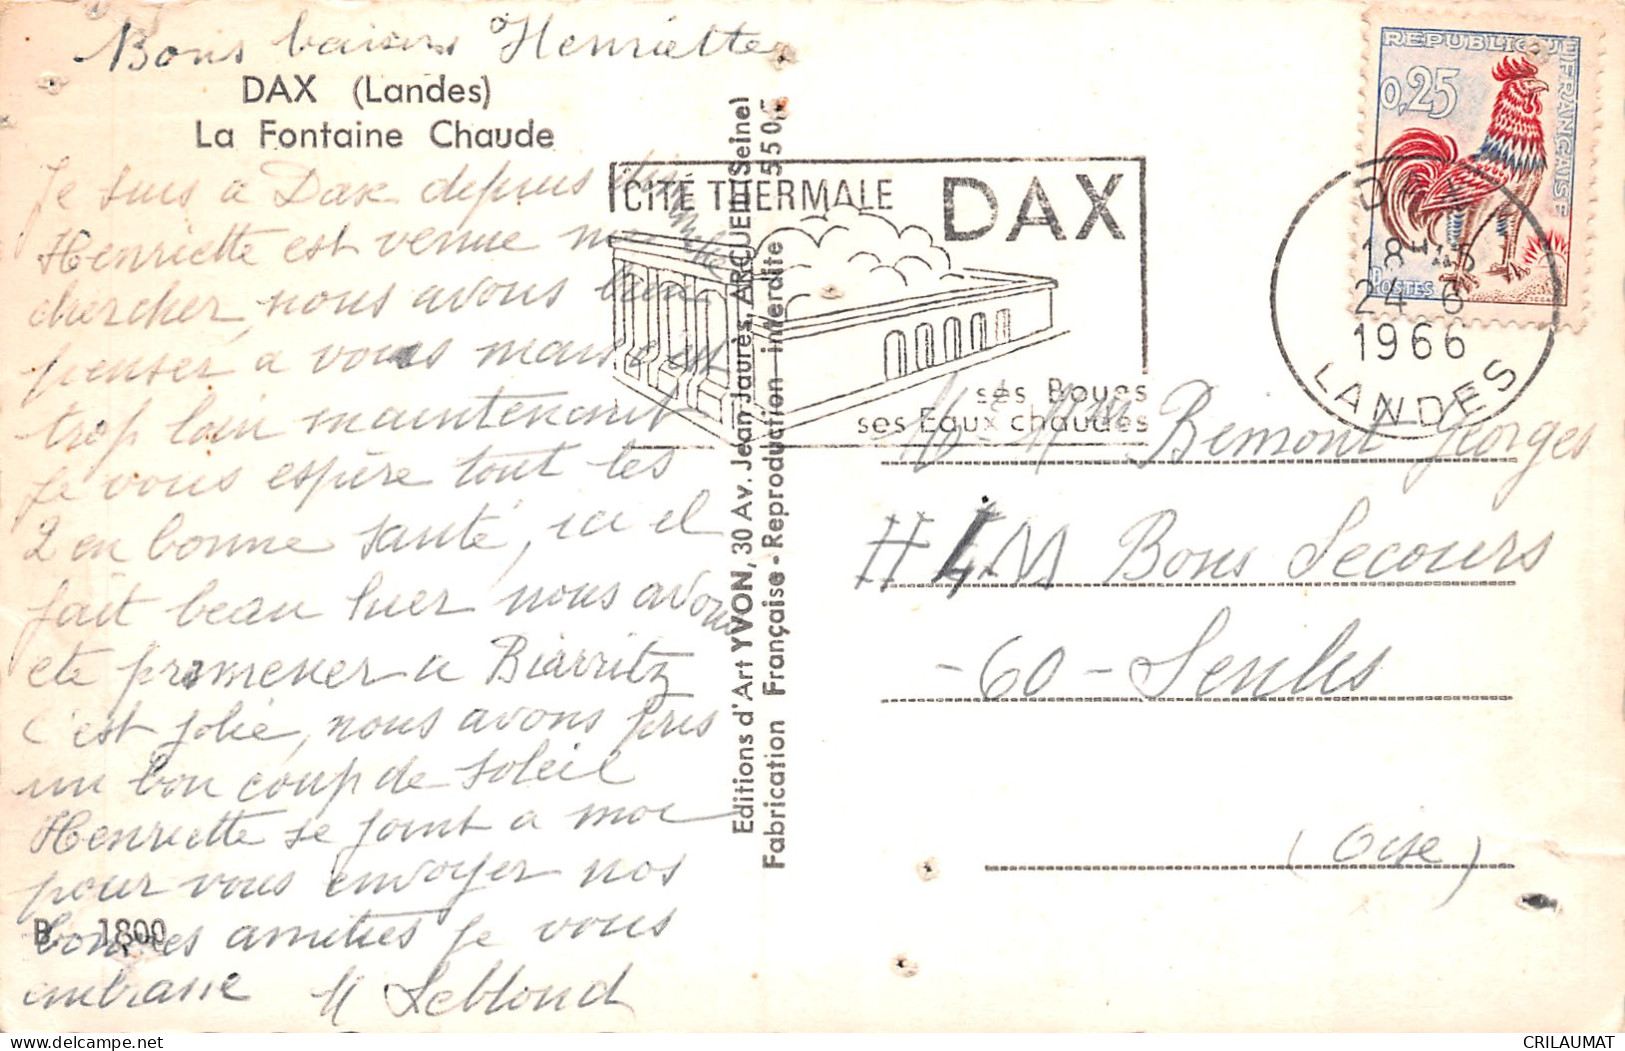 Bons baisers Henriette
DAX (Landes)
La Fontaine Chaude
Je suis à Dax depuis
Henriette est venue me
chercher, nous avons bien
penser a vous mais c'est
trop loin maintenant
Je vous espère tout les
2 en bonne santé, ici il
fait beau hier nous avons
ete promener a Biarritz
c'est jolie, nous avons pris
un bon coup de soleil
Henriette se joint a moi
pour vous envoyer nos
bonnes amitiés je vous
embrasse M Leblond
B. 1800
Editions d'Art YVON, 30 Av. Jean Jaurès, ARCUEIL (Seine)
Fabrication Française - Reproduction interdite 5505
CITÉ THERMALE DAX
ses Boues
ses Eaux chaudes
REPUBLIQUE FRANÇAISE
0,25
POSTES
DAX
18H45
24-6
1966
LANDES
M. Mme Bemont Georges
HLM Bons Secours
-60- Senlis
(Oise)
CRILAUMAT